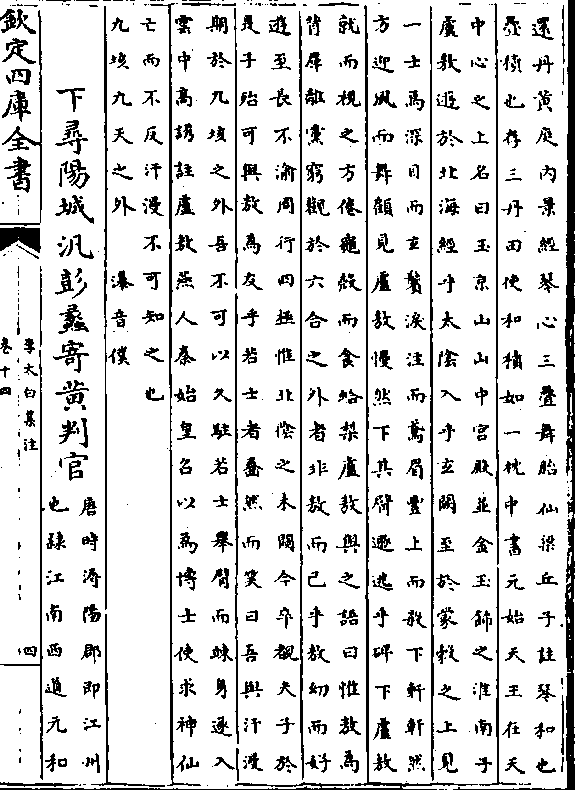 還丹黄庭内景經琴心三疊舞胎仙梁丘子註琴和也
疊積也存三丹田使和積如一枕中書元始天王在天
中心之上名曰玉京山山中宮殿並金玉飾之淮南子
盧敖遊於北海經乎太陰入乎玄闕至於蒙穀之上見
一士焉深目而玄鬢淚注而鳶肩豐上而殺下軒軒然
方迎風而舞顧見盧敖慢然下其臂遯逃乎碑下盧敖
就而視之方倦龜殻而食蛤棃盧敖與之語曰惟敖為
背羣離黨窮觀於六合之外者非敖而已乎敖幼而好
遊至長不渝周行四極惟北隂之未闚今卒覩夫子於
是子殆可與敖為友乎若士者齤然而笑曰吾與汗漫
期於九垓之外吾不可以久駐若士舉臂而竦身遂入
雲中高誘註盧敖燕人秦始皇召以為博士使求神仙
亡而不反汗漫不可知之也
九垓九天之外 瀑音僕
下尋陽城汎彭蠡寄黄判官
唐時潯陽郡即江州
也隸江南西道元和
欽定四庫全書
李太白集注
卷十四
四